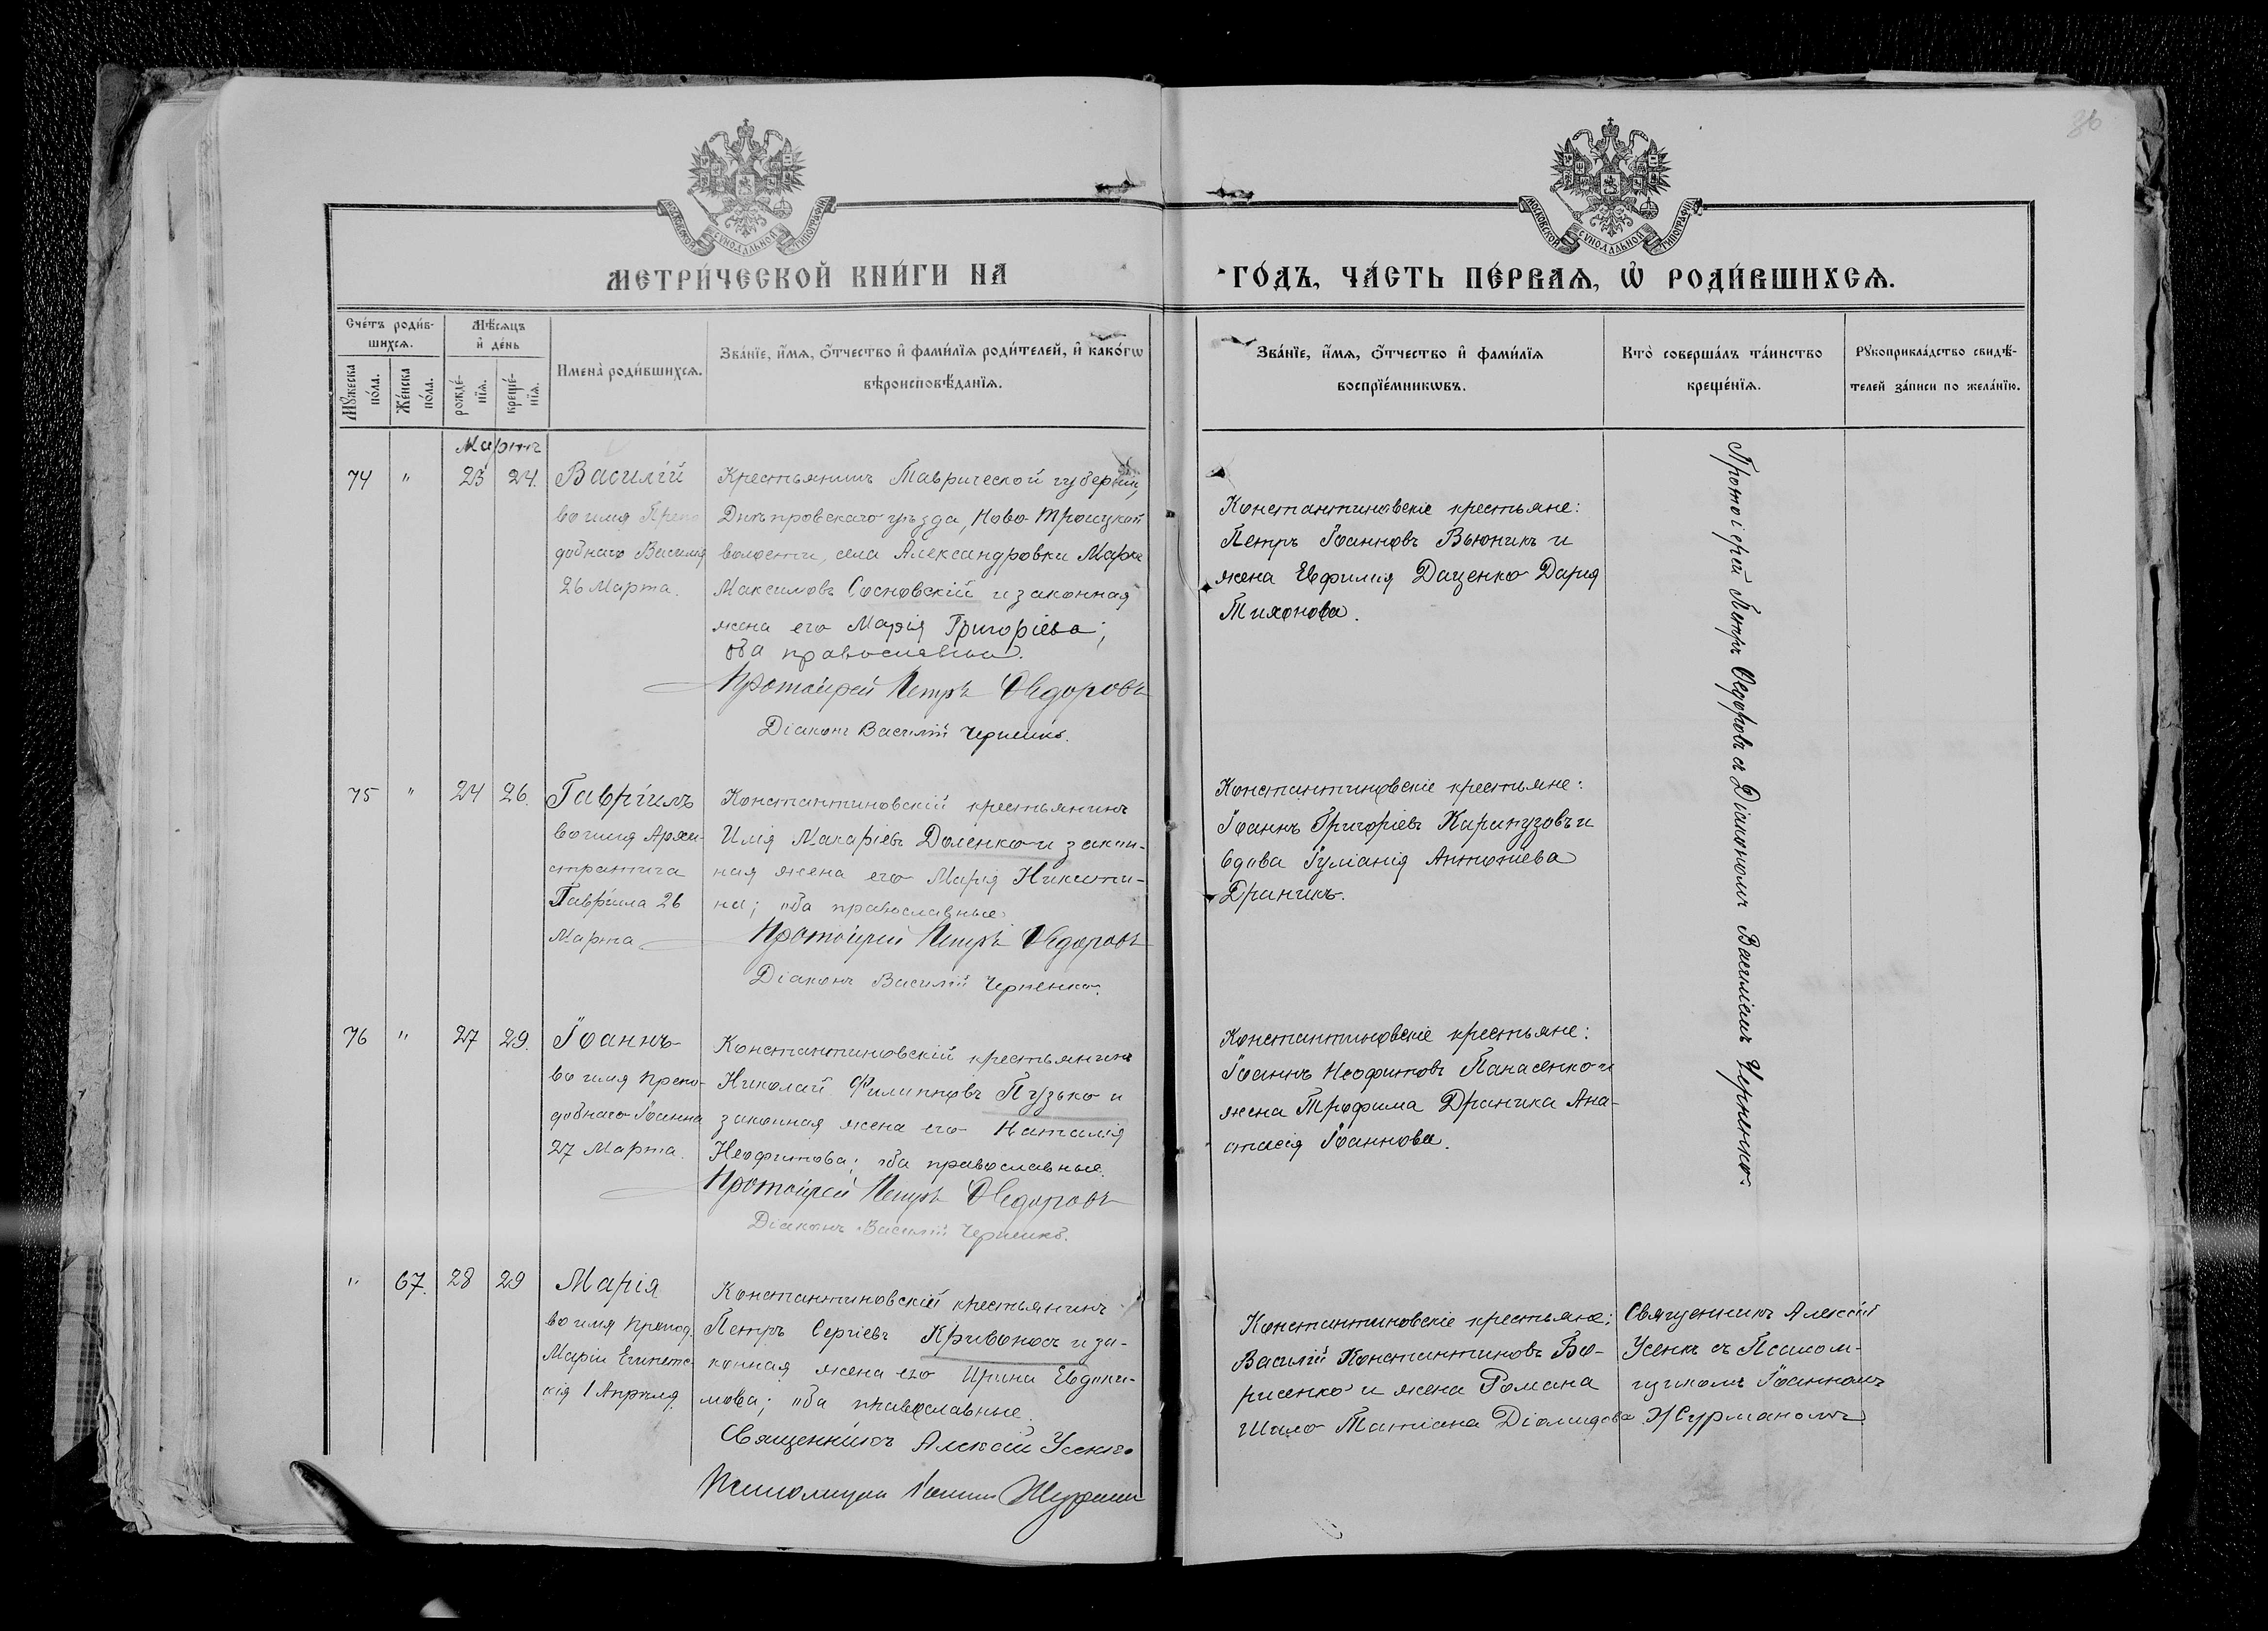 36
МОСКОВСКОЙ СѴНОДАЛЬНОЙ ТИПОГРАФІИ
МОСКОВСКОЙ СѴНОДАЛЬНОЙ ТИПОГРАФІИ
МЕТРИ́ЧЕСКОЙ КНИ́ГИ НА
ГО́ДЪ, ЧА́СТЬ ПЕ́РВАѦ, Ѡ҆ РОДИ́ВШИХСѦ.
Сче́тъ роди́в-
шихсѧ.
Мꙋжеска
по́ла.
Же́нска
по́ла.
Мѣ́сѧцъ
и҆ де́нь
рожде́-
нїѧ.
креще́-
нїѧ.
Имена̀ роди́вшихсѧ.
Зва́нїе, и҆́мѧ, ѻ҆́тчество и҆ фами́лїѧ роди́телей, и҆ како́гѡ
вѣроисповѣ́данїѧ.
Зва́нїе, и҆́мѧ, ѻ҆́тчество и҆ фами́лїѧ
воспрїе́мникѡвъ.
Кто̀ соверша́лъ та́инство
креще́нїѧ.
Рꙋкоприкла́дство свидѣ́-
телей за́писи по жела́нїю.
Мартъ
74 " 23 24. Василій
во имя Препо
добнаго Василія
26 Марта.
Крестьянинъ Таврической губерніи,
Днѣпровскаго уѣзда, Ново-Троицкой
волости, села Александровки Марк
Максимовъ Сосновскій и законная
жена его Марія Григоріева;
оба православные.
Протоіерей Петръ Ѳедоровъ
Діаконъ Василій Черненко.
Константиновскіе крестьяне:
Петръ Іоанновъ Вьюникъ и
жена Евфимія Даценко Дарія
Тихонова.
Протоіерей Петръ Ѳедоровъ съ Діакономъ Василіемъ Черненко.
75 " 24 26. Гавріилъ
во имя Архи-
стратига
Гавріила 26
Марта
Константиновскій крестьянинъ
Илія Макаріевъ Доленко и закон-
ная жена его Марія Никити-
на; оба православные.
Протоіерей Петръ Ѳедоровъ
Діаконъ Василій Черненко.
Константиновскіе крестьяне:
Іоаннъ Григоріевъ Карпузовъ и
вдова Іуліанія Антоніева
Драникъ.
76 " 27 29. Іоаннъ
во имя препо-
добнаго Іоанна
27 Марта.
Константиновскій крестьянинъ
Николай Филипповъ Пузько и
законная жена его Наталія
Неофитова; оба православные.
Протоіерей Петръ Ѳедоровъ
Діаконъ Василій Черненко.
Константиновскіе крестьяне:
Іоаннъ Неофитовъ Панасенко и
жена Трофима Драника Ана-
стасія Іоаннова.
" 67. 28 29 Марія
во имя препод.
Маріи Египетс-
кія 1 Апрѣля.
Константиновскій крестьянинъ
Петръ Сергіевъ Кривоносъ и за-
конная жена его Ирина Евдоки-
мова; оба православные.
Священникъ Алексій Усенко
Псаломщикъ Іоаннъ Журман
Константиновскіе крестьяне:
Василій Константиновъ Бо-
рисенко и жена Романа
Шило Татіана Діомидова.
Священникъ Алексій
Усенко съ Псалом-
щикомъ Іоанномъ
Журманомъ.